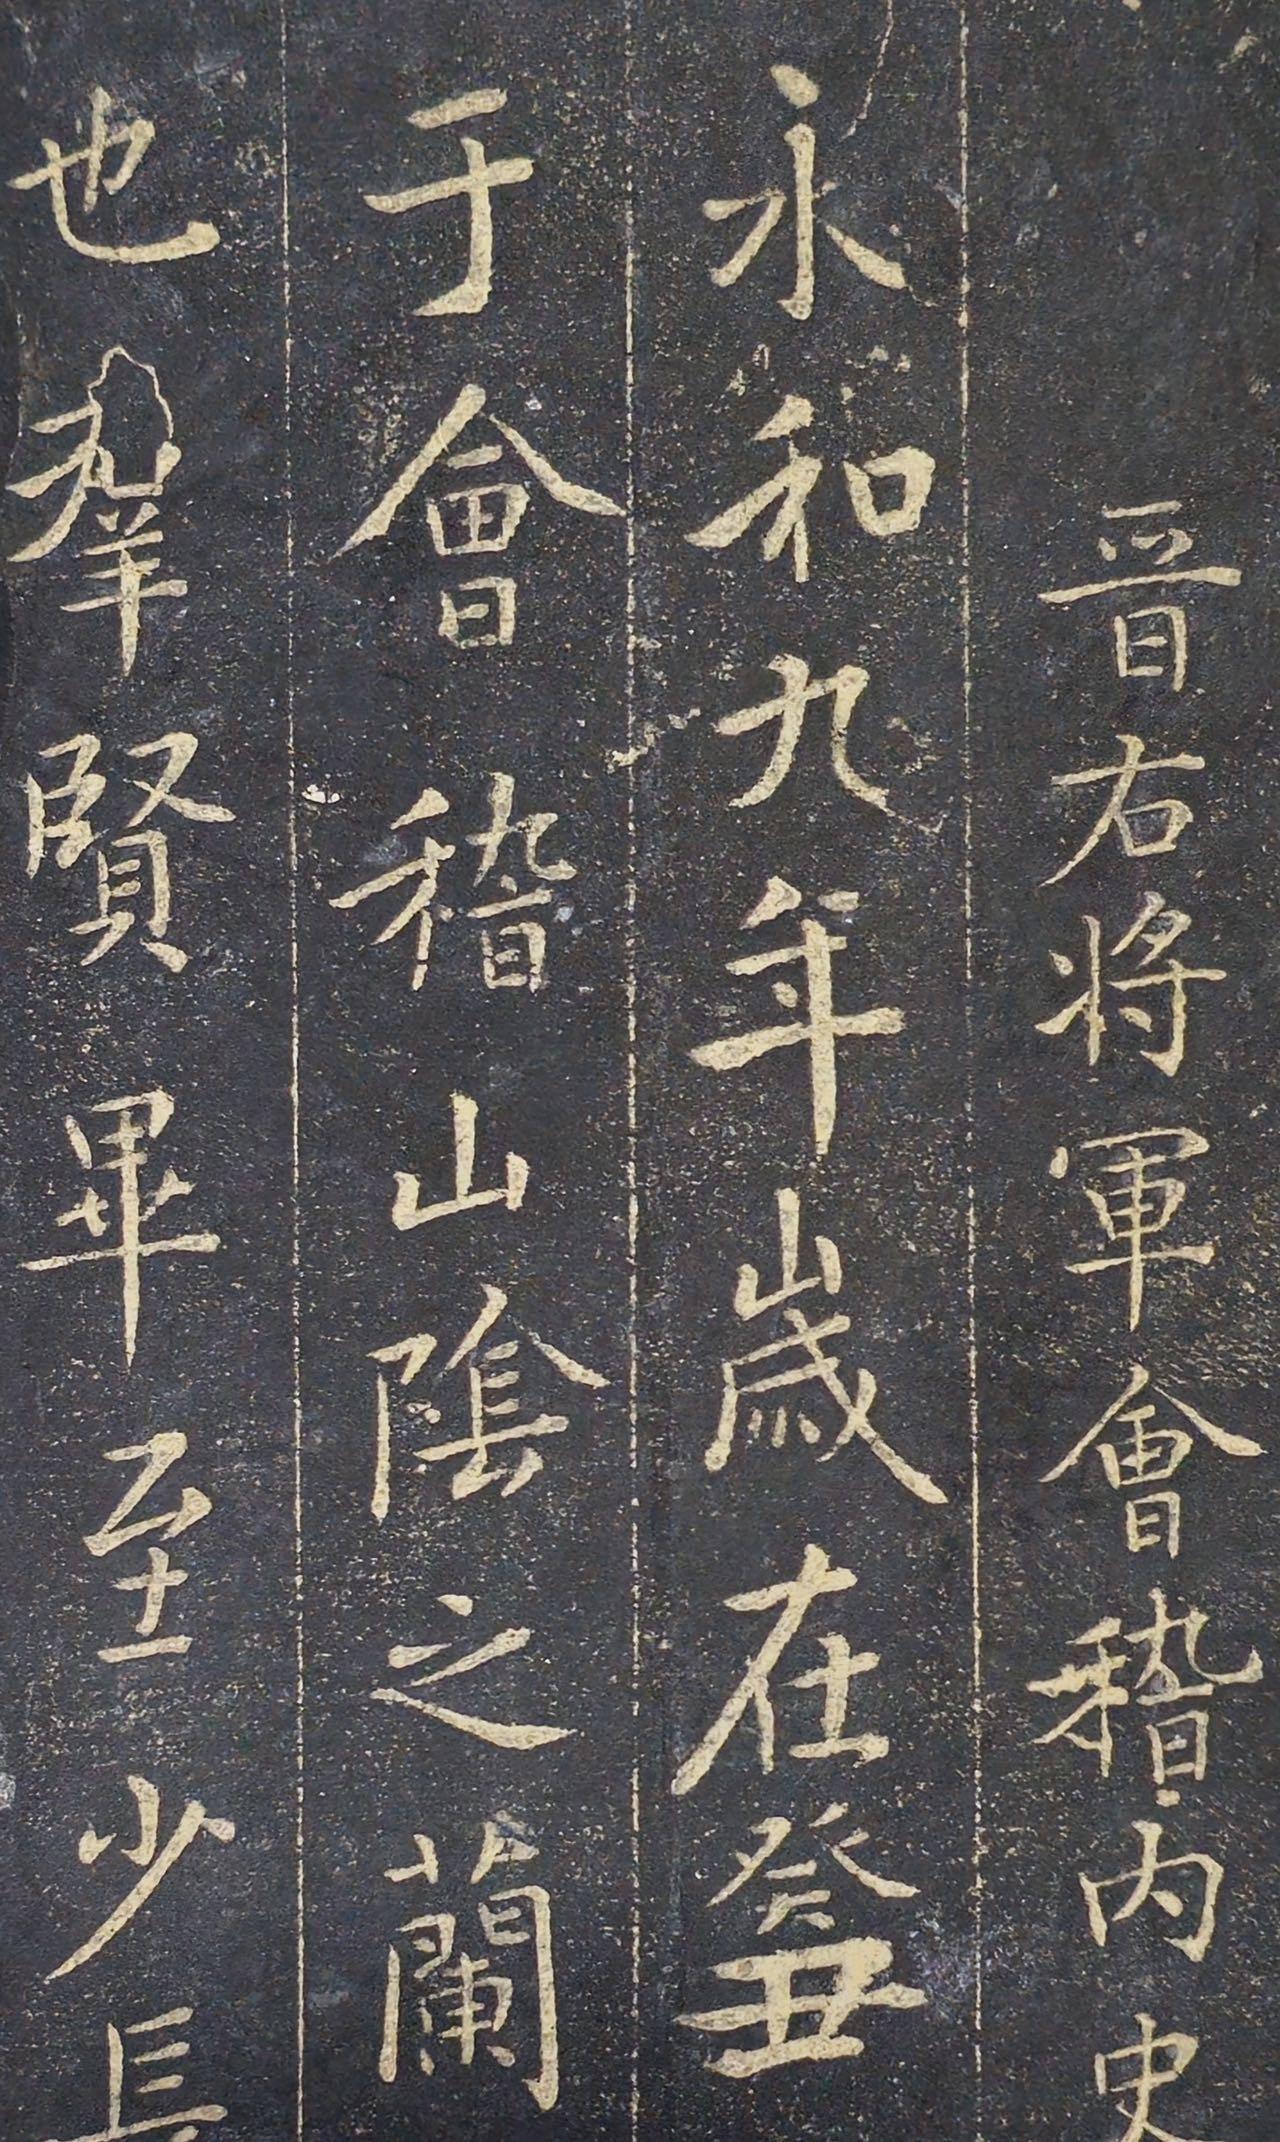 晉右將軍會稽内史
永和九年歲在癸丑
于會稽山陰之蘭
也羣賢畢至少長